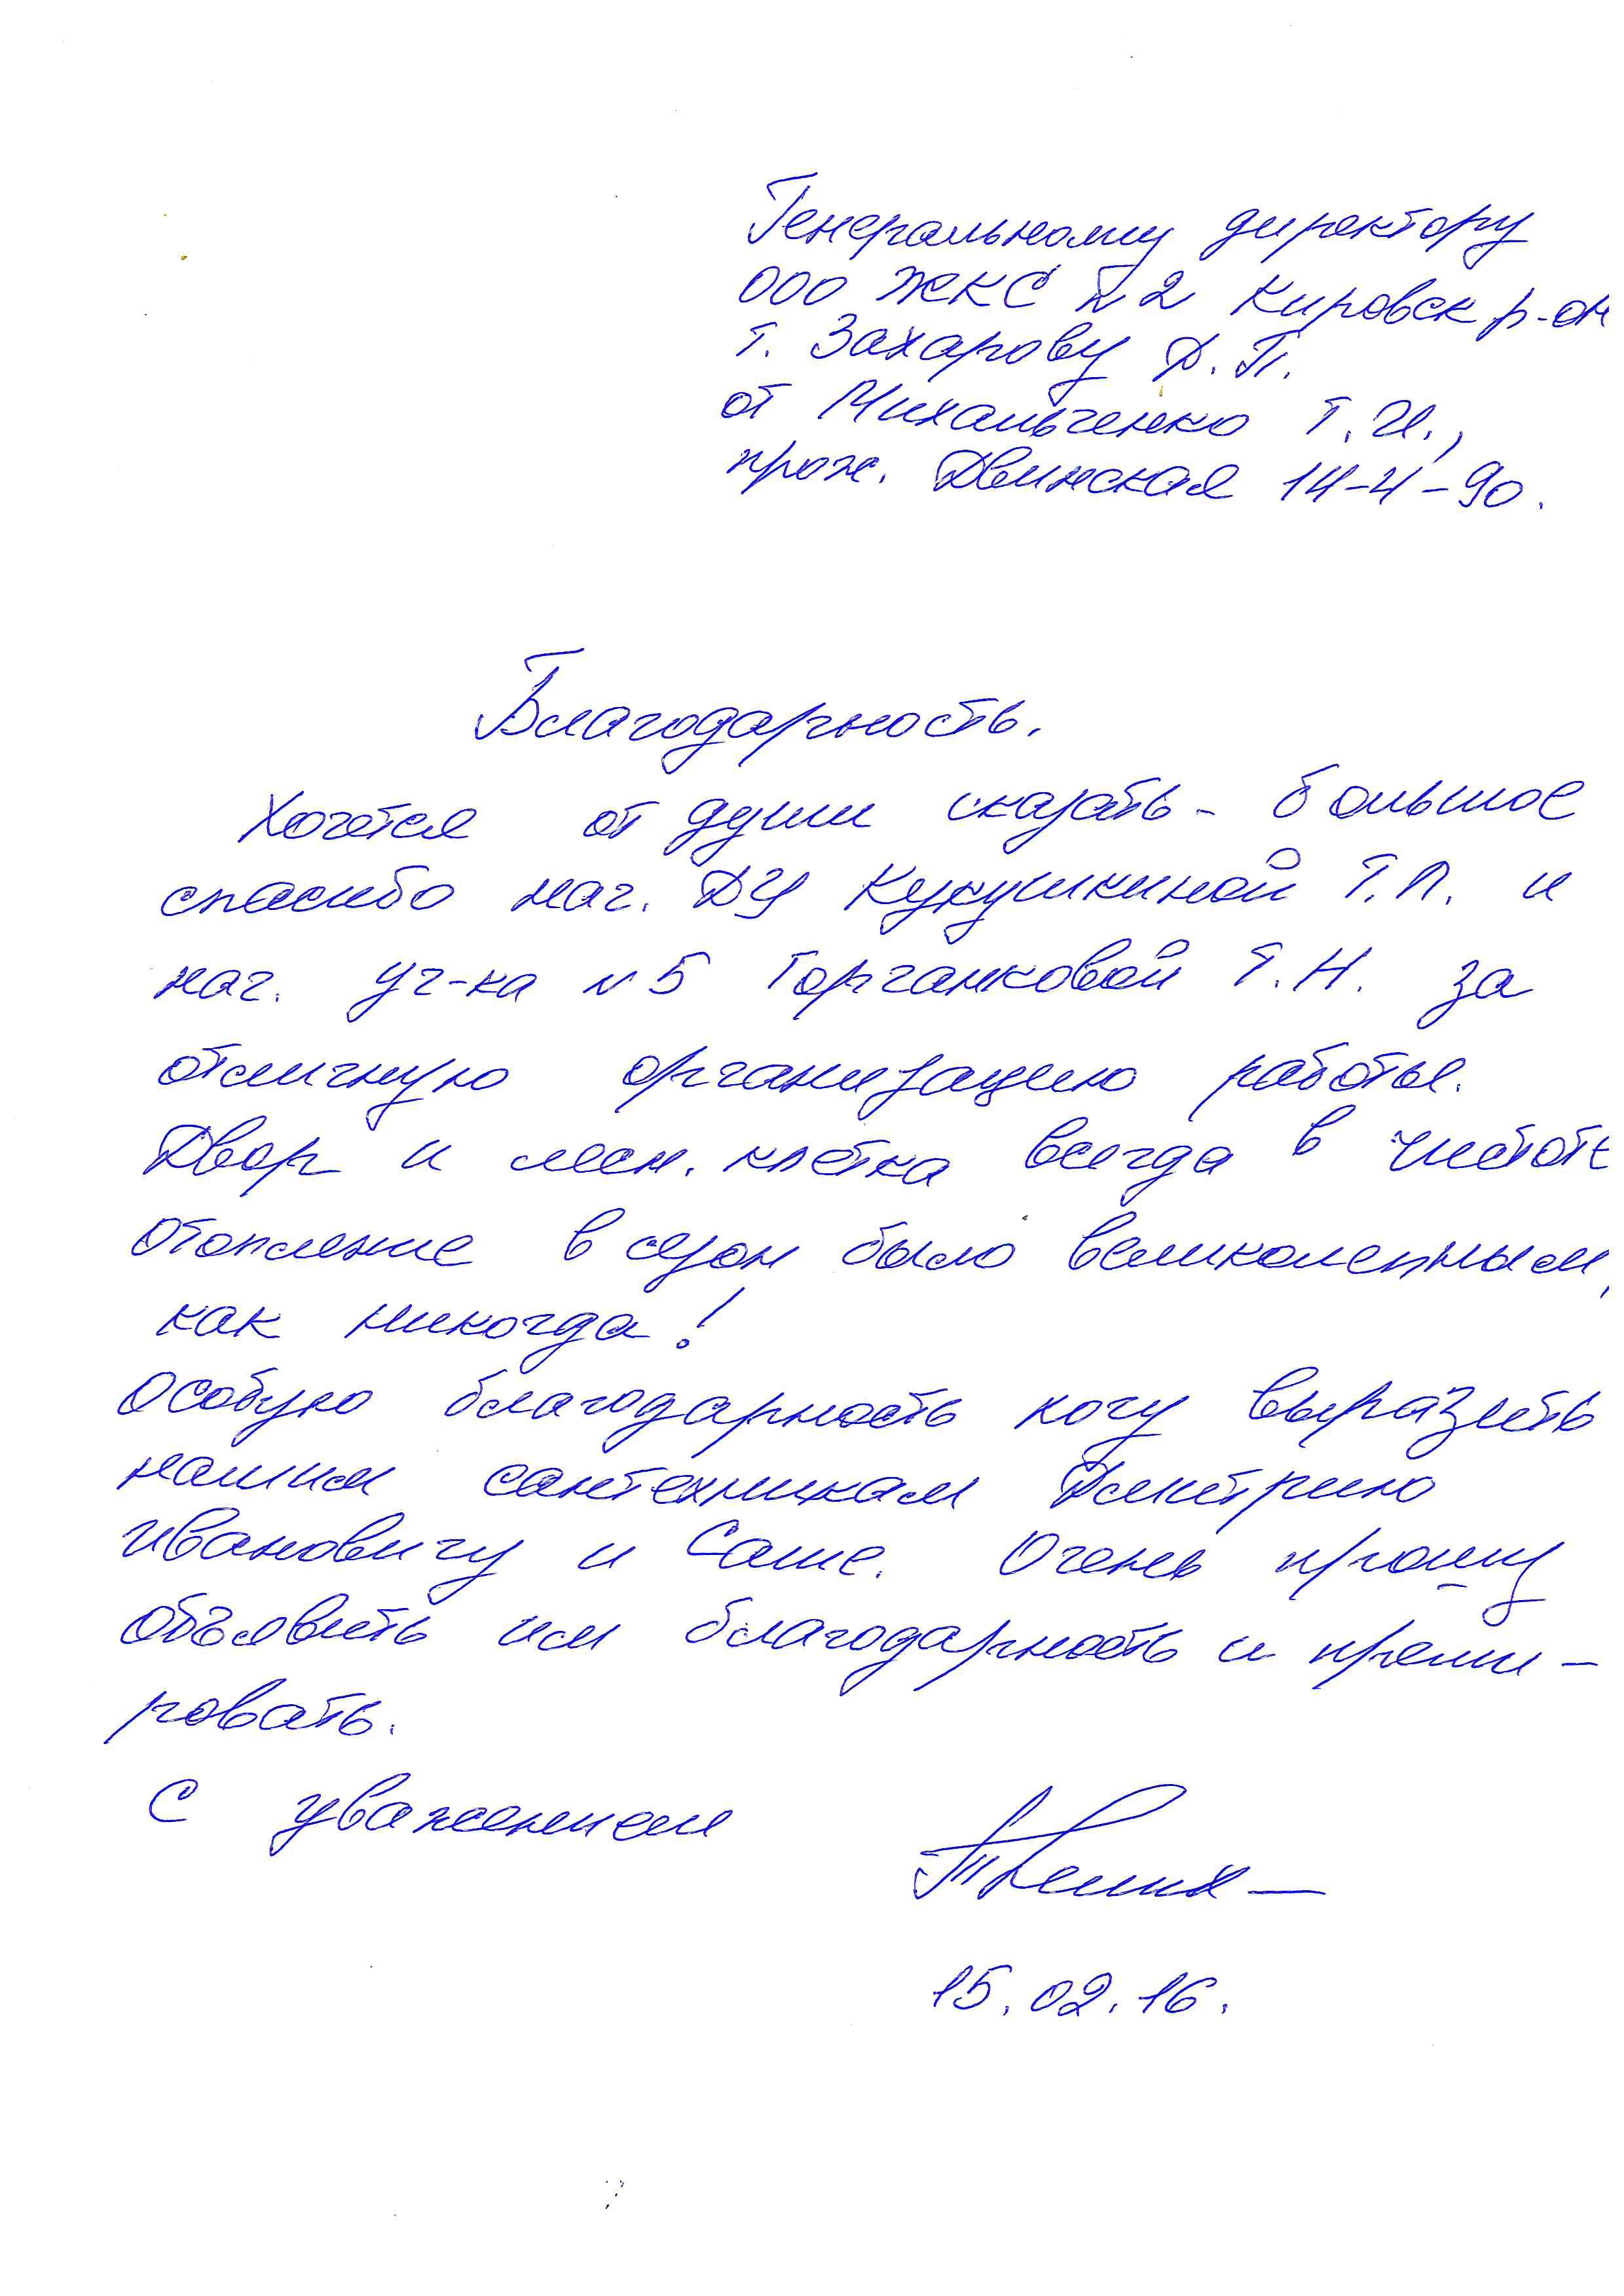 Генеральному директору
ООО ЖКС №2 Кировск р-он
т. Захарову Д.П.
от Михальченко Т.И.,
прож. Двинская 14-4-90.
Благодарность.
Хочется от души сказать - большое
спасибо нач. ДУ Кукушкиной Т.Л. и
нач. уч-ка №5 Горганковой Т.Н. за
отличную организацию работы.
Двор и лесн. клетка всегда в чистоте
отопление в сезон было великолепным,
как никогда!
Особую благодарность хочу выразить
нашим сантехникам Дмитрию
Ивановичу и Саше. Очень прошу
объявить им благодарность и преми-
ровать.
С уважением
15.02.16.